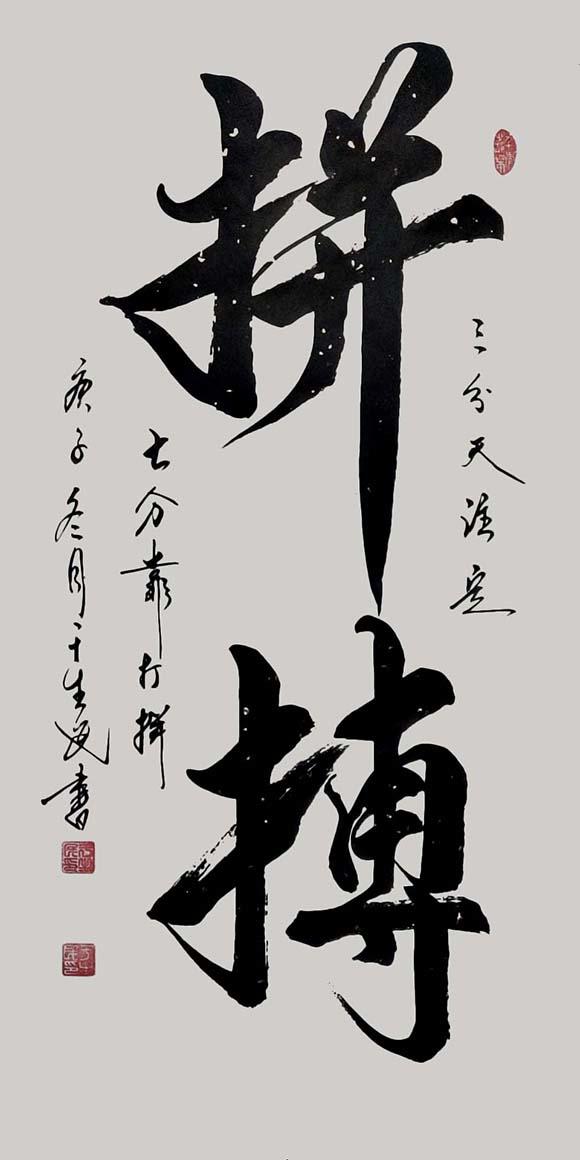 三分天註定
拼搏
七分靠打拼
庚子冬月于生書